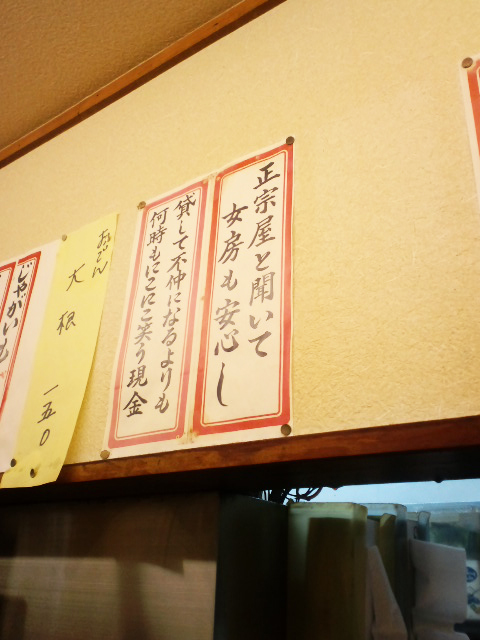 正宗屋と聞いて
女房も安心し
貸して不仲になるよりも
何時もにこにこ笑う現金
おでん
大根 一五〇
じゃがいも